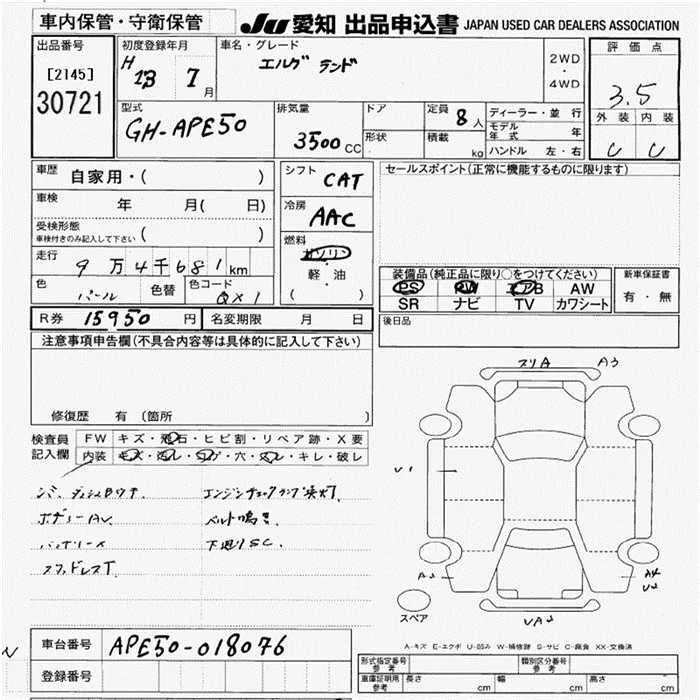 車内保管・守衛保管
JU 愛知 出品申込書 JAPAN USED CAR DEALERS ASSOCIATION
出品番号
[2145]
30721
初度登録年月
H 13 7月
車名・グレード
エルグランド
2WD
・
4WD
評価点
3.5
外装 内装
C C
型式
GH-APE50
排気量
3500 CC
ドア
形状
定員
8人
積載
kg
ディーラー・並行
モデル年式 年
ハンドル 左・右
車歴
自家用・( )
車検
年 月( 日)
受検形態
車検付きのみ記入して下さい ( )
走行
9万4千681km
色
パール
色替
色コード
QX1
シフト
CAT
冷房
AAC
燃料
ガソリン
・
軽・油
( )
セールスポイント(正常に機能するものに限ります)
装備品(純正品に限り○をつけてください)
PS PW エアB AW
SR ナビ TV カワシート
新車保証書
有・無
R券 15950円
名変期限 月 日
後日品
注意事項申告欄(不具合内容等は具体的に記入して下さい)
修復歴 有(箇所 )
検査員
記入欄
FW キズ・飛石・ヒビ割・リペア跡・X要
内装 キズ・汚レ・コゲ・穴・スレ・キレ・破レ
エンジンチェックランプ点灯
ベルト鳴き
下廻りSC.
スタッドレスT
スリA A3
U1
A3
A4
U2
UA2
スペア
A-キズ E-エクボ U-凹み W-補修跡 S-サビ C-腐食 XX-交換済
N
車台番号 APE50-018076
登録番号
形式指定番号
参考
類別区分番号
参考
車庫証明用
参考
長さ cm 幅 cm 高さ cm